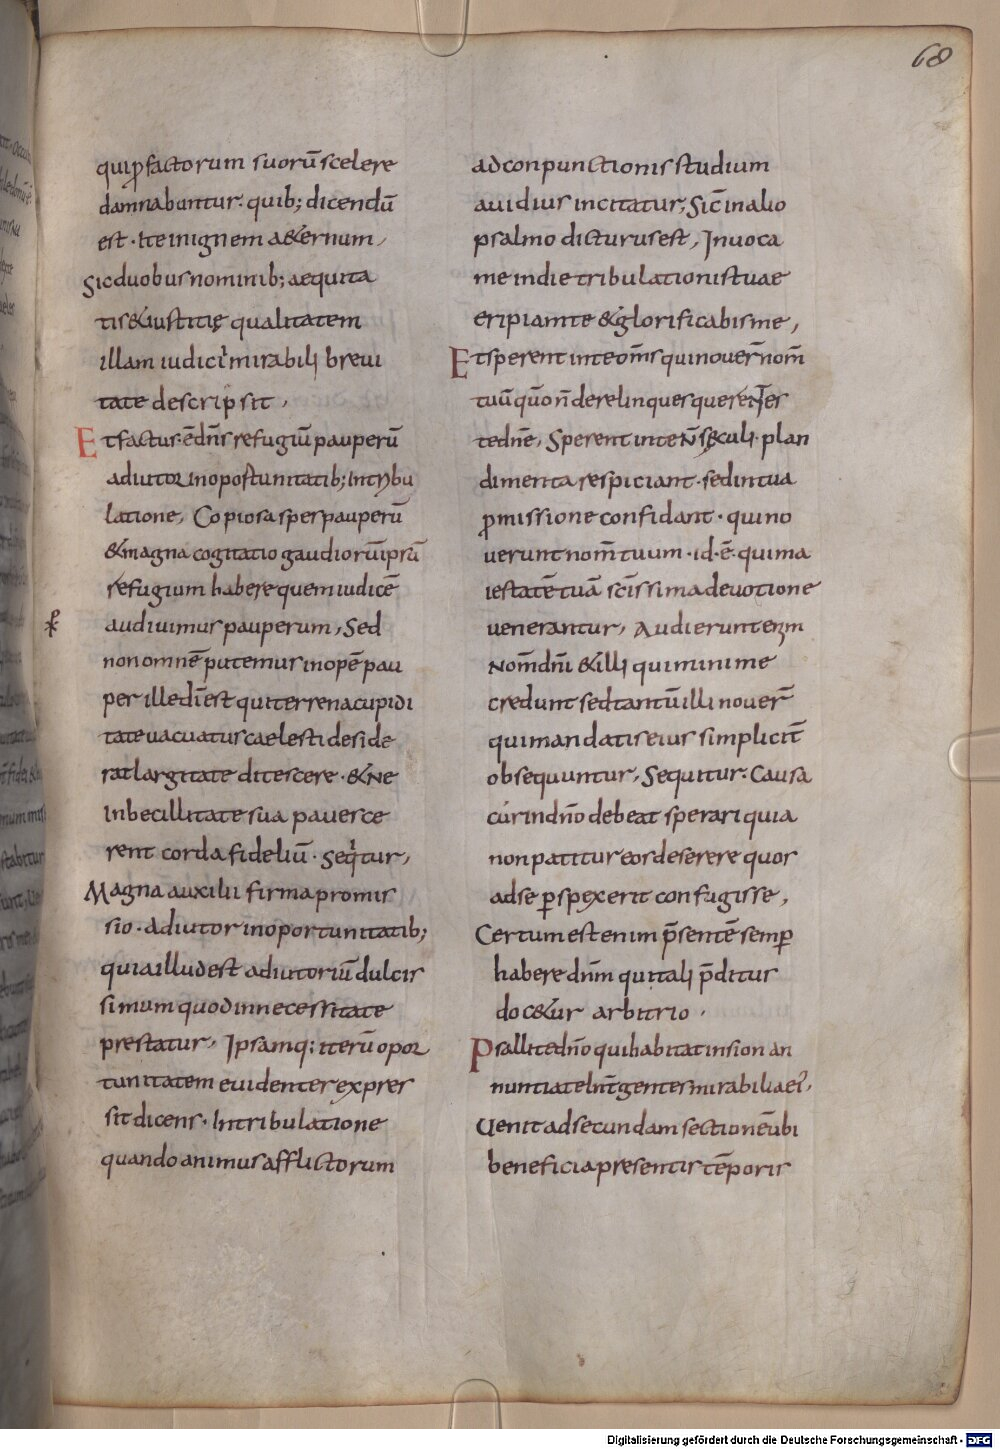 68
qui ꝓ factorum suorū scelere
damnabuntur· quib; dicendū
est· Ite in ignem aeternum,
Sic duobus nominib; aequita
tis & iustitię qualitatem
illam iudicii mirabili brevi
tate descripsit,
Et factus·ē dn̄s refugiū pauperū
adiutor in oportunitatib; In tribu
latione, Copiosa spes pauperū
& magna cogitatio gaudiorū ipsū
refugium habere quem iudicē
audivimus pauperum, Sed
non omnē putemus inopē pau
per ille dī est qui terrena cupidi
tate uacuatus caelesti deside
rat largitate ditescere· & ne
Inbecillitate sua pauesce
rent corda fideliū· Sequitur,
Magna auxilii firma promis
sio· adiutor in oportunitatib;
quia illud est adiutoriū dulcis
simum quod in necessitate
prestatur, Ipsamq: iterū opor
tunitatem euidenter expres
sit dicens· In tribulatione
quando animus afflictorum
ad conpunctionis studium
auidius incitatur, Sic̄ in alio
psalmo dicturus est, Inuoca
me in die tribulationis tuae
eripiam te & glorificabis me,
Et sperent in te om̄s qui nouer̄ nom̄
tuū qūo n̄ derelinques querentes
te dn̄e, Sperent in te N̄ sęculi· plan
dimenta respiciant· sed in tua
ꝓmissione confidant· qui no
uerunt nom̄ tuum· id·ē· qui ma
iestatē tuā sc̄issima deuotione
uenerantur, Audierunt enim
Nom̄ dn̄i & illi qui minime
credunt sed tantū illi nouer̄
qui mandatis eius simplicit̄
obsequuntur, Sequitur· Causa
cúr in dn̄o debeat sperari quia
non patitur eos deserere quos
ad se ꝑspexerit confugisse,
Certum est enim p̄sentē semꝑ
habere dn̄m qui tali p̄ditus
docetur arbitrio·
Psallite dn̄o qui habitat in sion an
nuntiate Int̄ gentes mirabilia ei',
Uenit ad secundam sectionē ubi
beneficia presentis tēporis
Digitalisierung gefördert durch die Deutsche Forschungsgemeinschaft - DFG